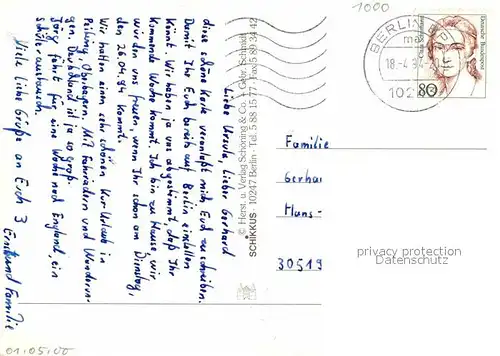 1000
BERLIN
18.-4.94
102
Deutsche Bundespost
80
Liebe Ursula, lieber Gerhard
diese schöne Karte veranlaßt mich Euch zu schreiben.
Damit Ihr Euch bereits auf Berlin einstellen
könnt. Wir haben ja vor abgestimmt daß Ihr
kommende Woche kommt. Ich bin zu Hause, wir
würden uns freuen, wenn Ihr schon am Dienstag,
den 26.04.94 kommt.
Wir hatten einen sehr schönen Kur-Urlaub in
Oberbayern. Mit Fahrrädern und Wandern-
gen. Deutschland ist ja so groß.
Jörg fährt für eine Woche nach England, ein
Schüleraustausch.
Viele liebe Grüße an Euch 3
Ernst und Familie
© Herst. u. Verlag Schöning & Co. + Gebr. Schmidt
SCHIKKUS · 10247 Berlin · Tel. 5 88 15 77 · Fax 5 89 34 42
Familie
Gerha
Hans-
30519
privacy protection
Datenschutz
01.05.00